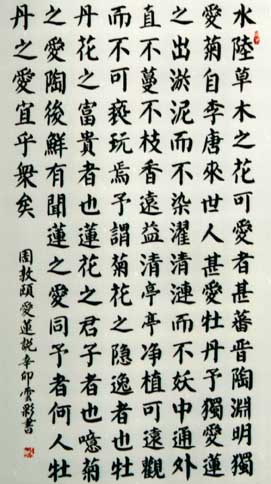 水陸草木之花可愛者甚蕃晉陶淵明獨
愛菊自李唐來世人甚愛牡丹予獨愛蓮
之出淤泥而不染濯清漣而不妖中通外
直不蔓不枝香遠益清亭亭净植可遠觀
而不可褻玩焉予謂菊花之隐逸者也牡
丹花之富貴者也蓮花之君子者也噫菊
之愛陶後鮮有聞蓮之愛同予者何人牡
丹之愛宜乎衆矣
周敦頤愛蓮説辛卯雲彩書